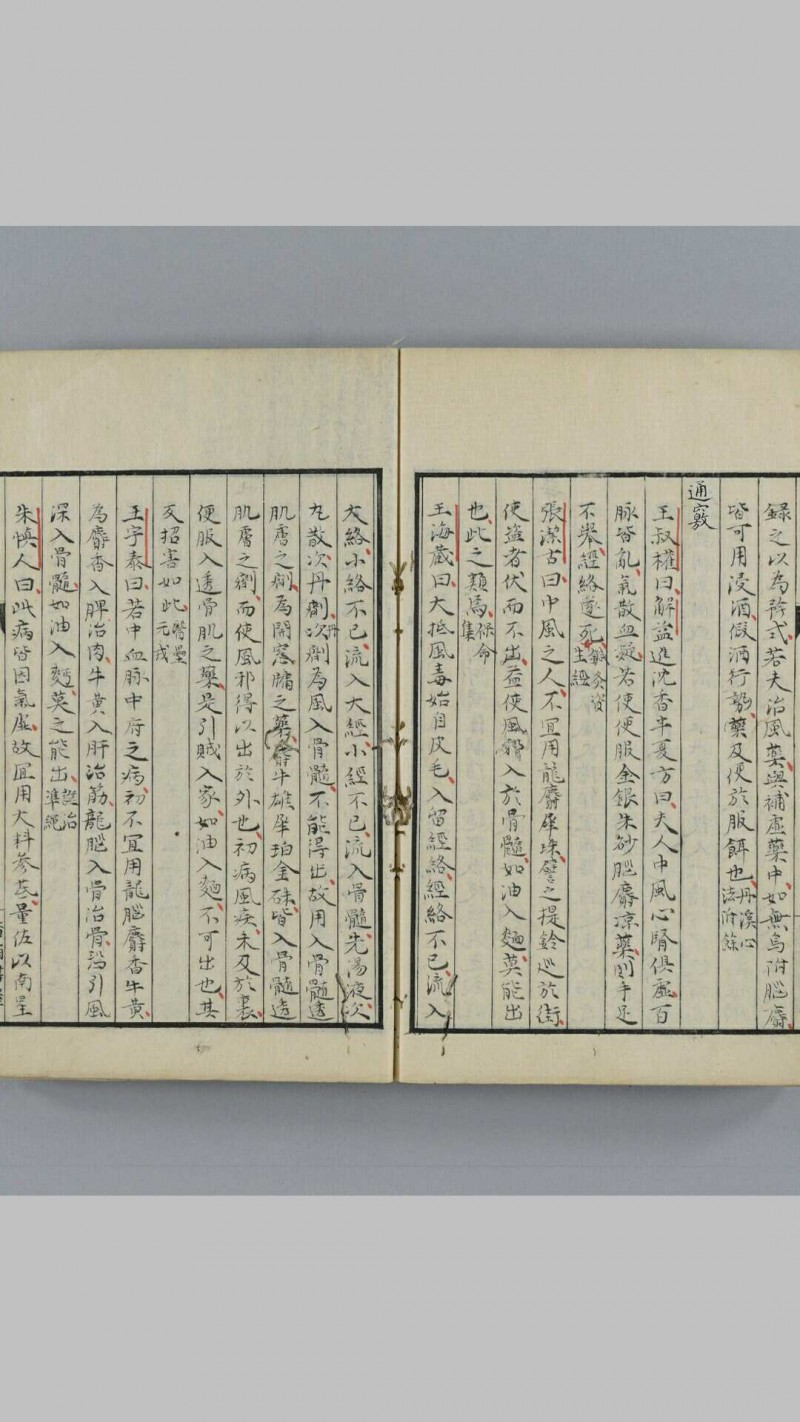 錄之以為矜式若夫治風藥與補虛藥中如無烏附腦麝
皆可用浸酒假酒行勢藥及便於服餌也丹溪心法附餘
通竅
王叔權曰解盆進沈香半夏方曰夫人中風心腎俱虛百
脉皆亂氣散血凝若使便服金銀朱砂腦麝凉藥則手足
不舉經絡還死鍼灸資生經
張潔古曰中風之人不宜用龍麝犀珠譬之提鈴巡於街
使盜者伏而不出益使風邪入於骨髓如油入麵莫能出
也此之類焉保命集
王海藏曰大抵風毒始自皮毛入留經絡經絡不已流入
大絡小絡不已流入大經小經不已流入骨髓先湯液次
丸散次丹劑次丹劑為風入骨髓不能得出故用入骨髓透
肌膚之劑為開窓牖之藥麝牛雄犀珀金硃皆入骨髓透
肌膚之劑而使風邪得以出於外也初病風疾未及於裏
便服入透骨肌之藥是引賊入家如油入麵不可出也其
反招害如此醫壘元戎
王宇泰曰若中血脉中府之病初不宜用龍腦麝香牛黄
為麝香入脾治肉牛黄入肝治筋龍腦入骨治骨恐引風
深入骨髓如油入麵莫之能出證治準繩
朱慎人曰此病皆因氣虛故宜用大料參芪量佐以南星